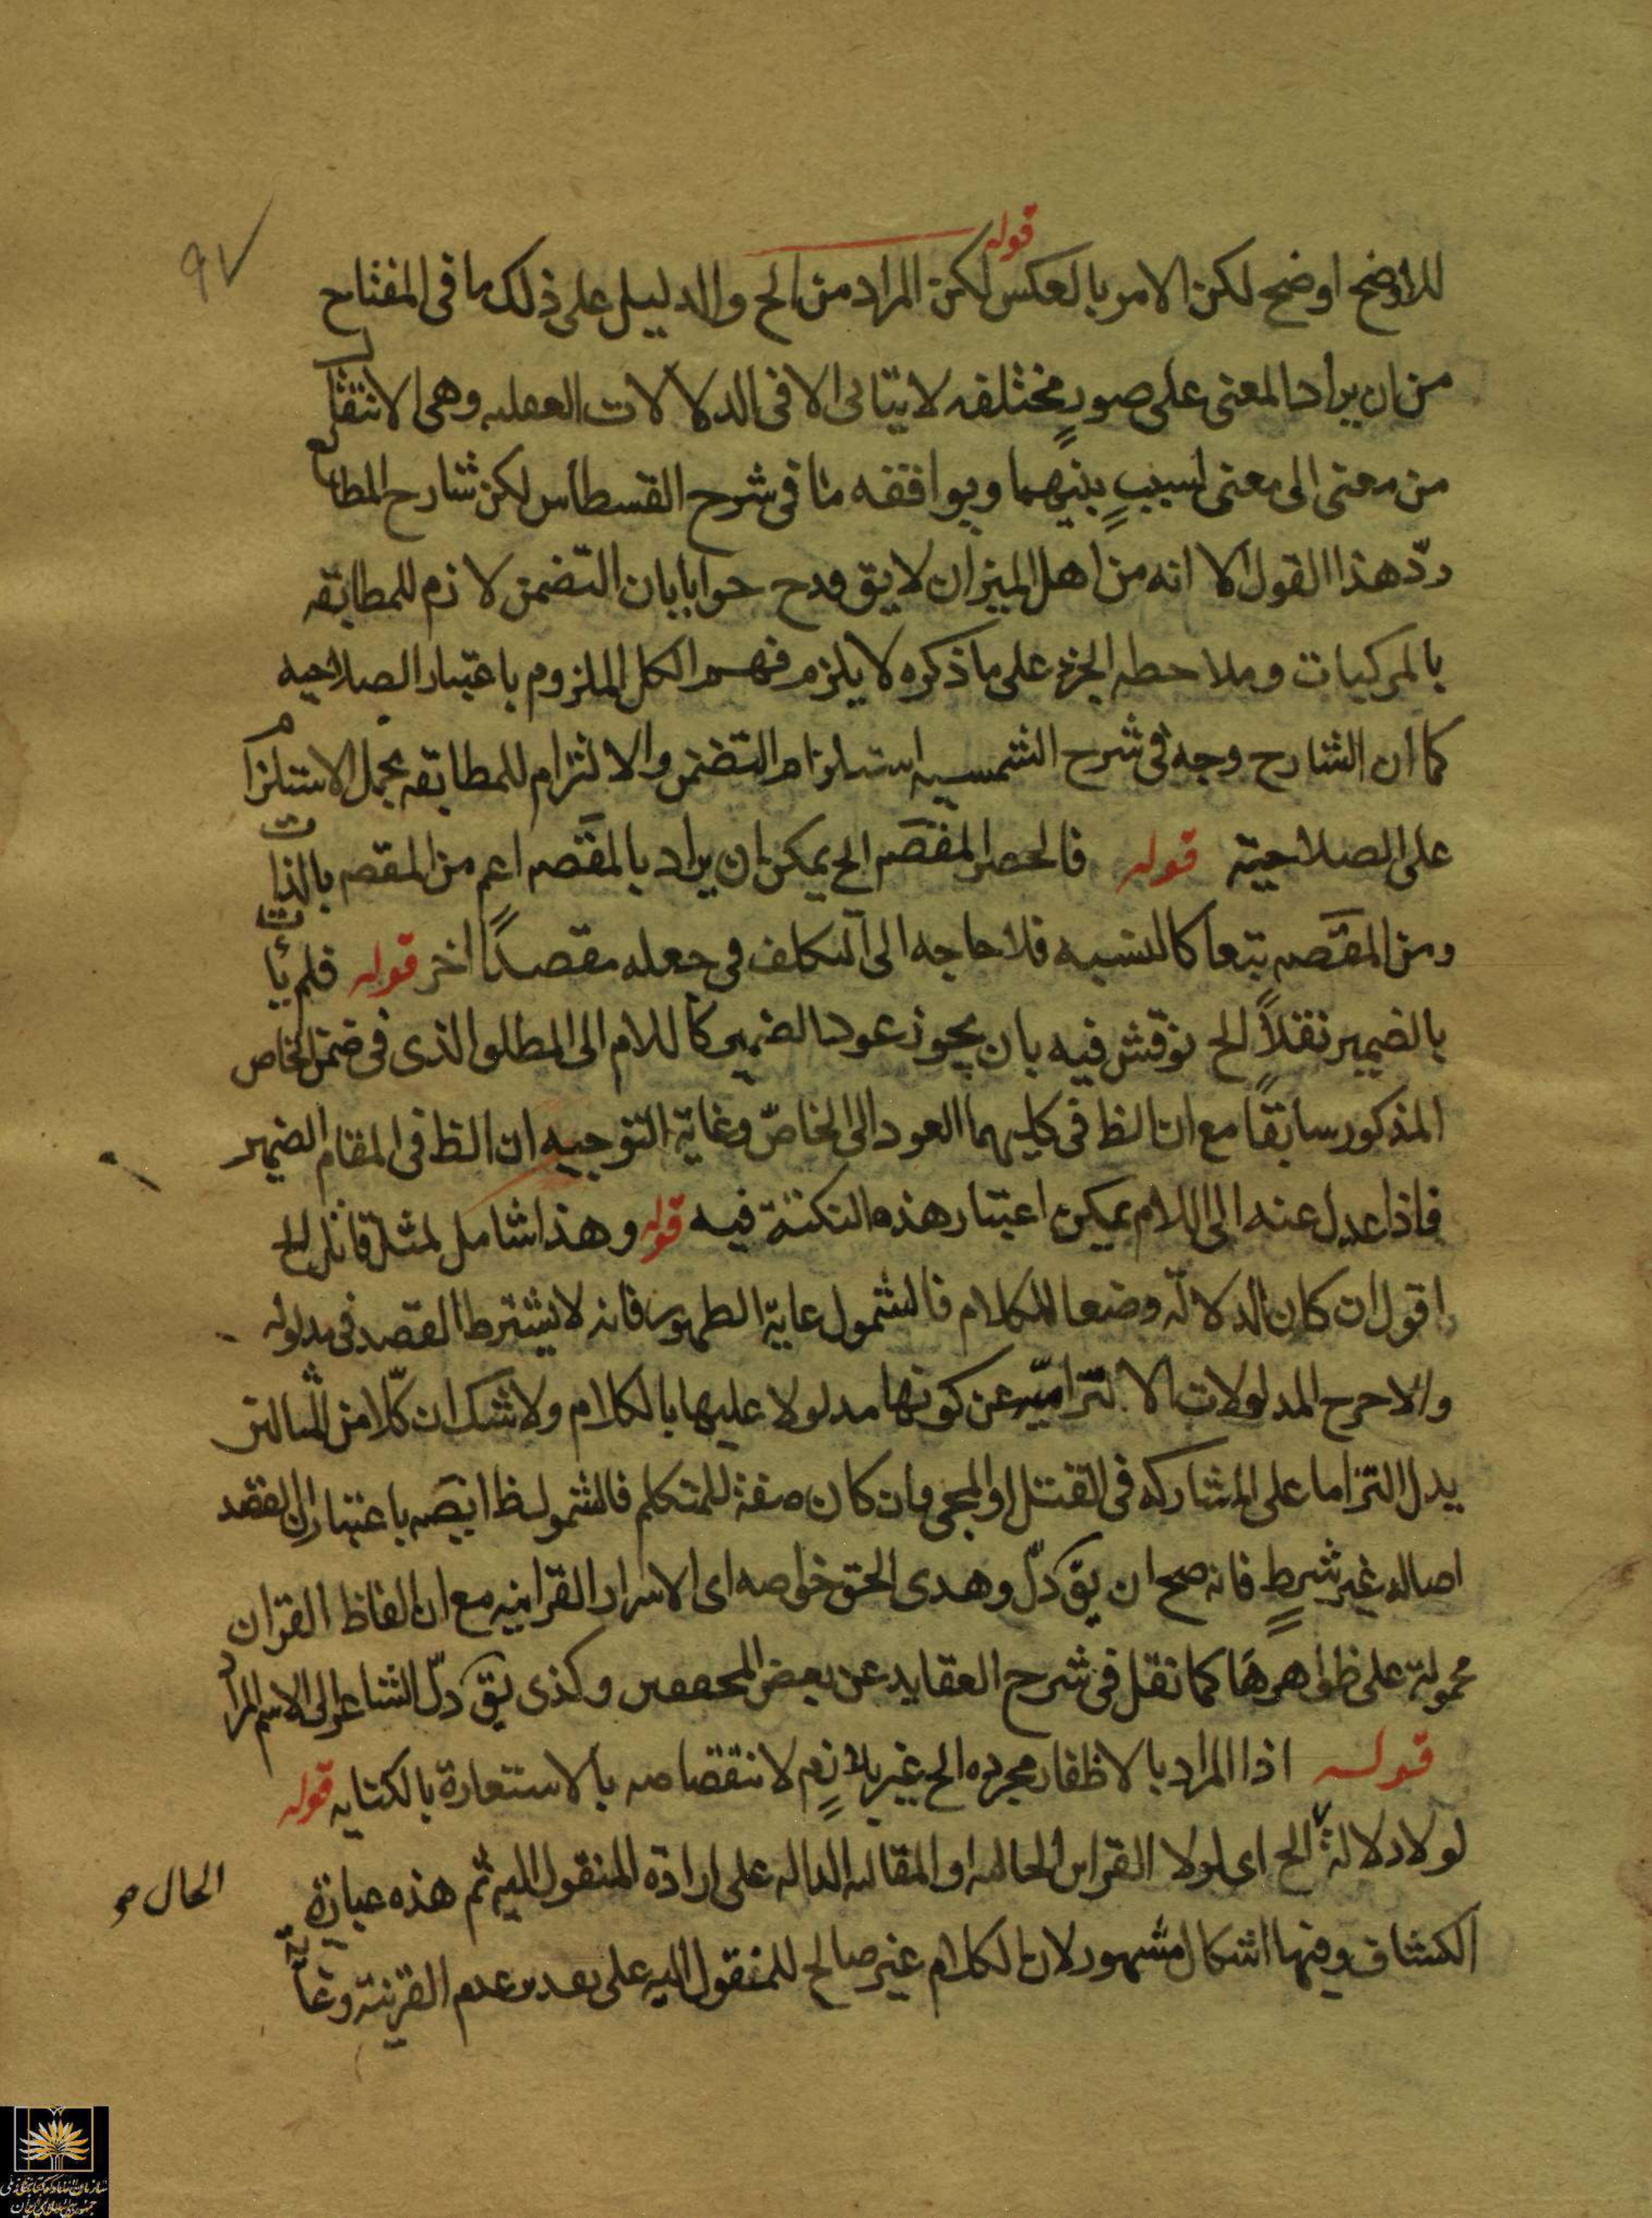 ٩٧
قوله
للاوضح اوضح لكن الامر بالعكس لكن المراد من الخ والدليل على ذلك ما فى المفتاح
من ان يراد المعنى على صورٍ مختلفه لا يتاتى الا فى الدلالات العقليه وهى الانتقال
من معنى الى معنى لسببٍ بينهما ويوافقه ما فى شرح القسطاس لكن شارح المطالع
ردّ هذا القول الا انه من اهل الميزان لا يق وح جوابا بان التضمن لازم للمطابقه
بالمركبات وملاحظه الجزء على ما ذكره لا يلزم فهم الكل الملزوم باعتبار الصلاحيه
كما ان الشارح وجه فى شرح الشمسيه استلزام التضمن والالتزام للمطابقه بحمل الاستلزام
على الصلاحية قوله فالحصر المقصَم الخ يمكن ان يراد بالمقصَم اعم من المقصم بالذات
ومن المقصَم تبعا كالتشبيه فلا حاجه الى التكلف فى جعله مقصدًا اخر قوله فلم يأت
بالضمير نقلاً الخ نوقش فيه بان يجوز عود الضمير كاللام الى المطلق الذى فى ضمن الخاص
المذكور سابقًا مع ان الظ فى كليهما العود الى الخاصّ وغاية التوجيه ان الظ فى المقام الضمير
فاذا عدل عنه الى اللام يمكن اعتبار هذه النكتة فيه قوله وهذا شامل لمثل قاتل الخ
اقول ان كان الدلالّه وضعا للكلام فالشمول غاية الظهور فانه لا يشترط القصد فى مدلوله
والا خرج المدلولات الالتزاميّه عن كونها مدلولا عليها بالكلام ولا شك ان كّلا من المثالين
يدل التزاما على المشاركه فى القتل او المجى وان كان صفة للمتكلم فالشمول ظ ايضَه باعتبار ان القصد
اصاله غير شرطٍ فانه صح ان يقَ دلّ وهدى الحق خواصه اى الاسرار القرانيه مع ان الفاظ القران
محمولة على ظواهرها كما نقل فى شرح العقايد عن بعض المحققين وكذى يقَ دلّ الشاعر الى الاسم المراد
قوله اذا المراد بالاظفار مجرده الخ غير لازمٍ لانتقاصه بالاستعارة بالكنايه قوله
لولا دلالة الخ اى لولا القراين الحاليه او المقاليه الداله على ارادة المنقول اليه ثم هذه عبارة
الحال صح
الكشاف وفيها اشكال مشهور لان الكلام غير صالح للمنقول اليه على تقدير عدم القرينة وغاية